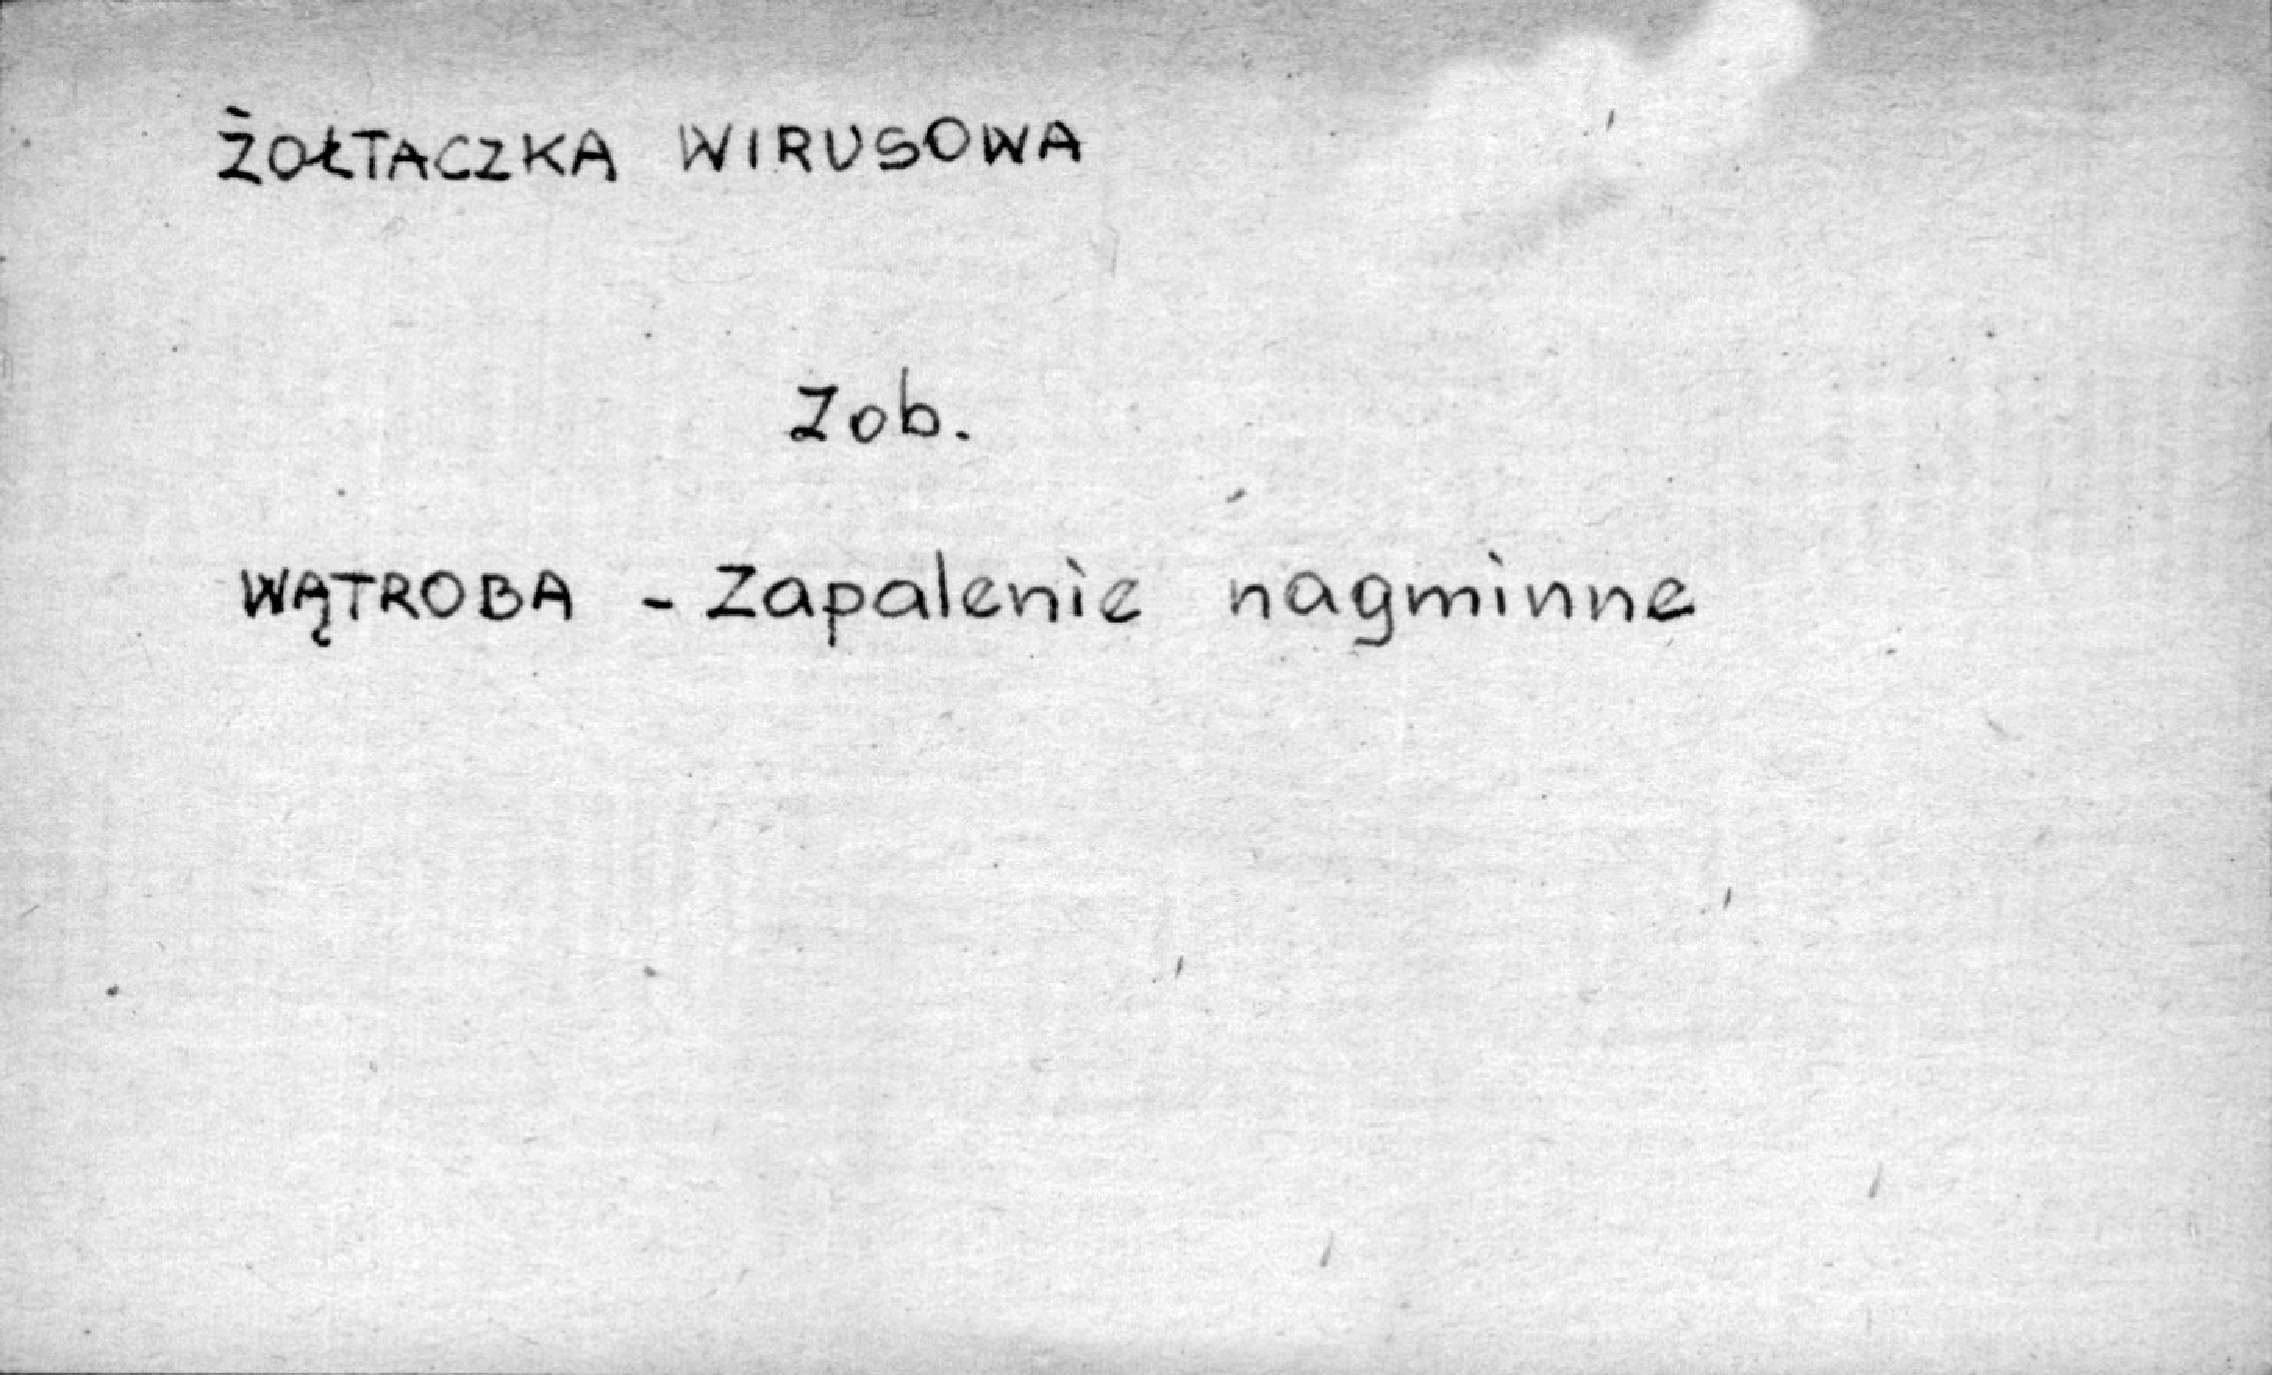 ŻOŁTACZKA WIRUSOWA
Zob.
WĄTROBA - Zapalenie nagminne